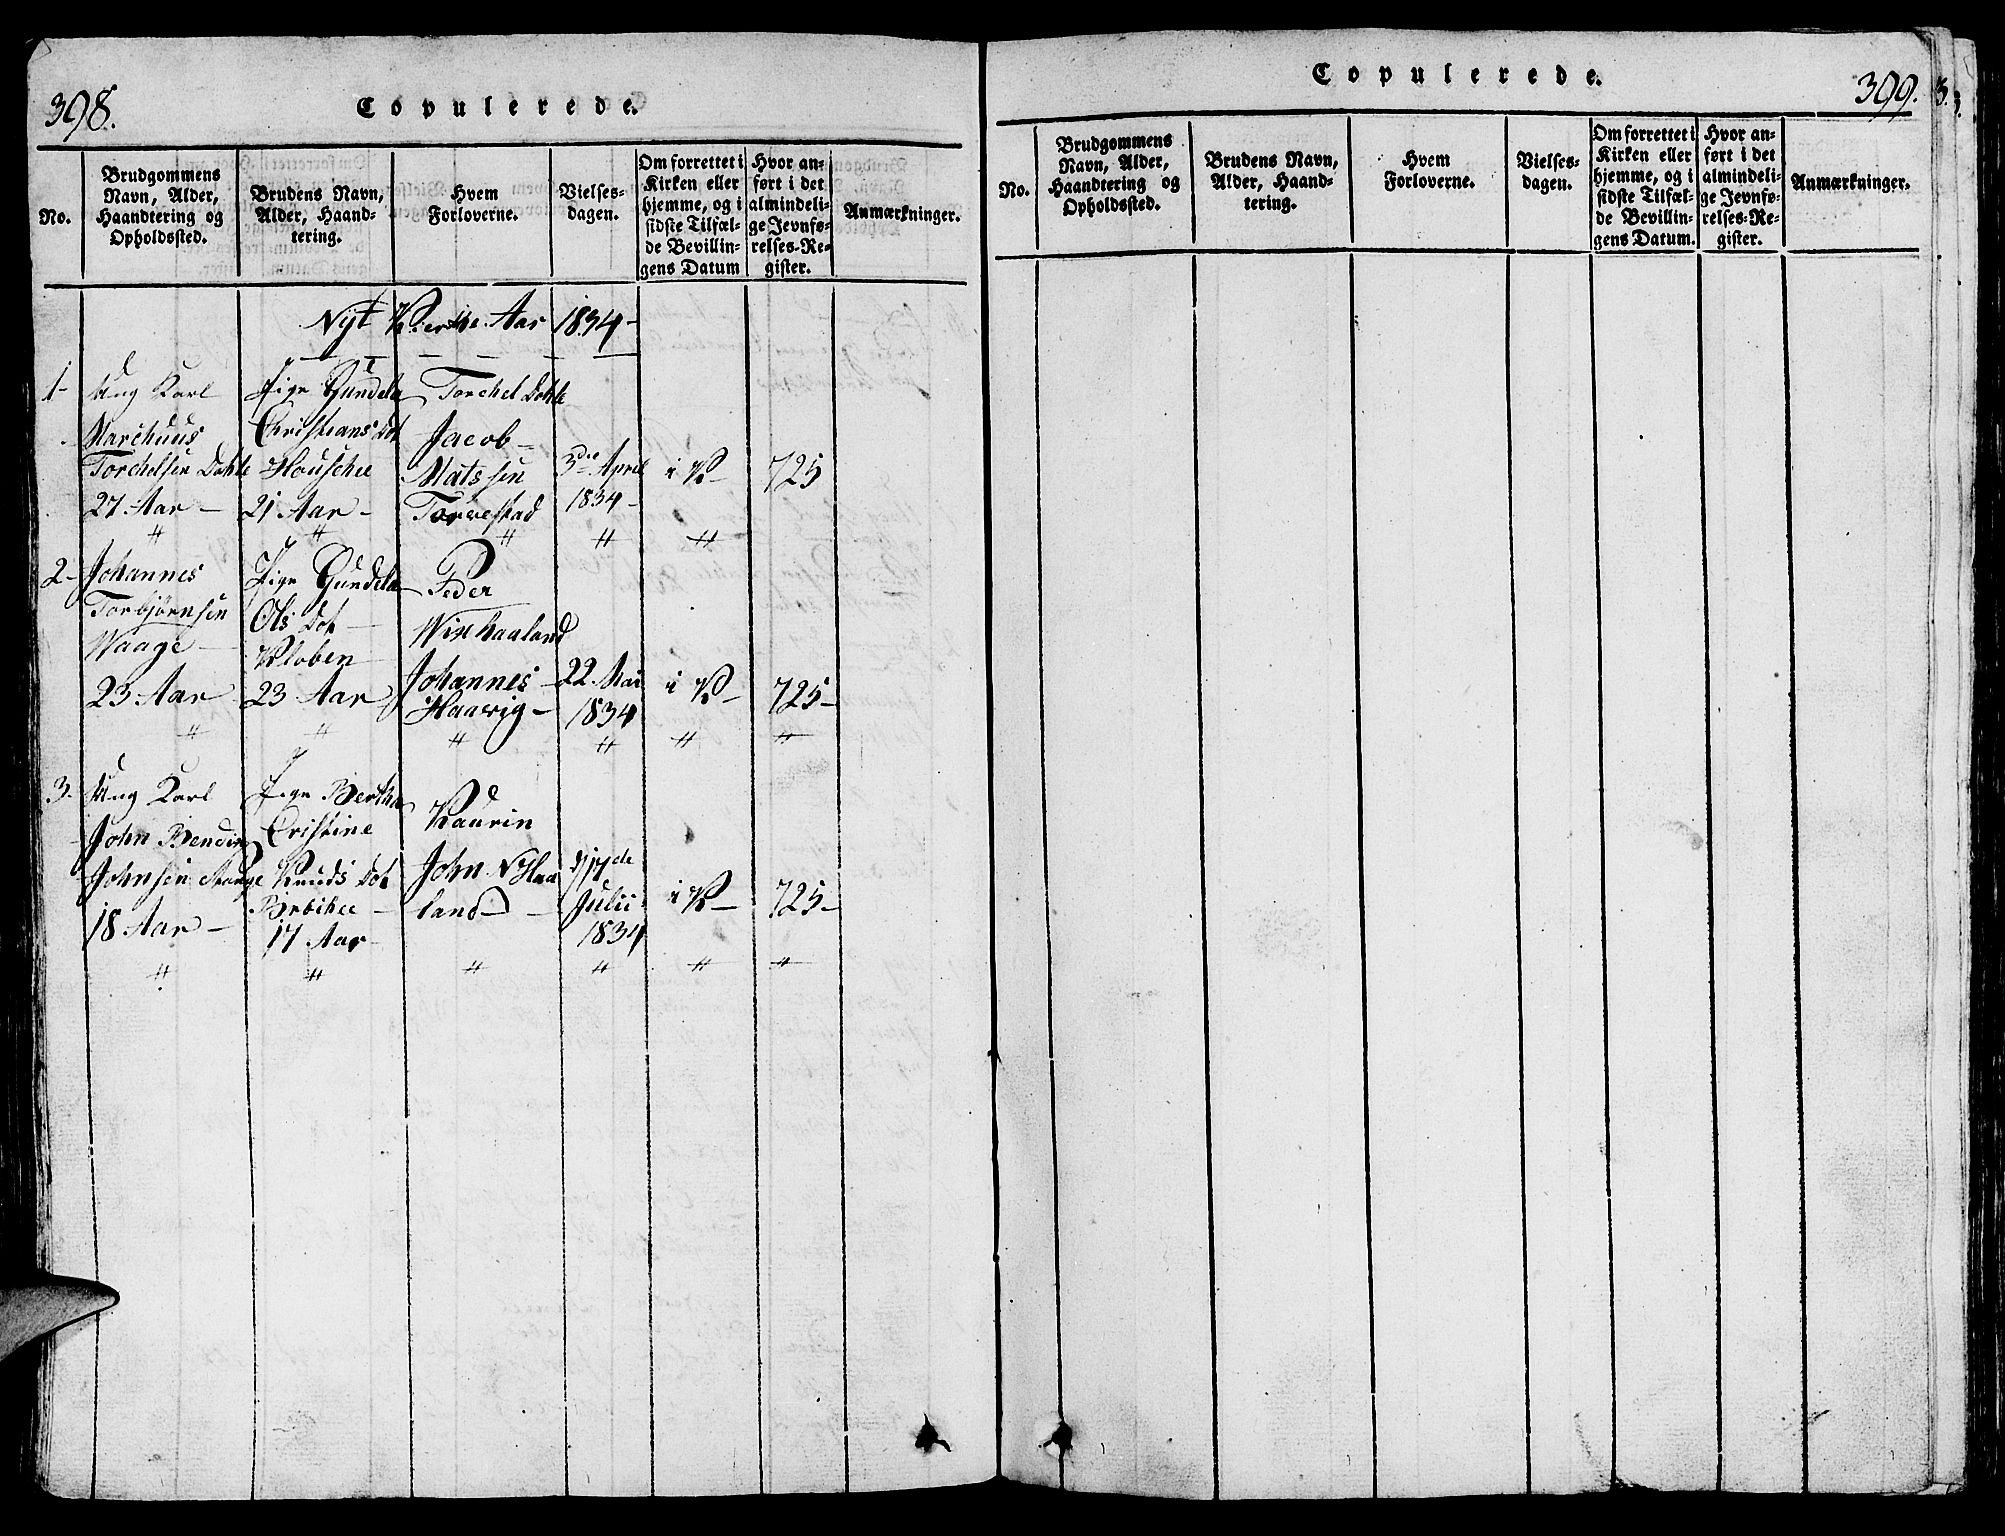 398.
Copulerede.
No.
Brudgommens
Navn, Alder,
Haandtering og
Opholdssted.
Brudens Navn,
Alder, Haand-
tering.
Hvem
Forloverne.
Vielses-
dagen.
Om forrettet i
Kirken eller
hjemme, og i
sidste Tilfæl-
de Bevillin-
gens Datum
Hvor an-
ført i det
almindeli-
ge Jevnfø-
relses-Re-
gister.
Anmærkninger.
Nyt Kierke Aar 1834-
1-
Ung Karl
Marchuus
Torchelsen Dahle
27 Aar -
Pige Gundela
Christians Dot
Houschee
21 Aar -
Torchel Dahle
Jacob -
Matssen
Torvestad
3die April
1834-
i K-
725
2-
Johannes
Torbjørnsen
Waage -
23 Aar
Pige Gundela
Ols Dot
Kloben
23 Aar
Peder
Wixhaaland
Johannes -
Haavig -
22 Mai
1834
i K-
725-
3-
Ung Karl
John
Johnsen
18 Aar -
Pige Bertha
Cristine
Knuds Dot
17 Aar -
Kaurin
John
land -
17de
Julii
1834
i K-
725-
Copulerede.
399.
No.
Brudgommens
Navn, Alder,
Haandtering og
Opholdssted.
Brudens Navn,
Alder, Haand-
tering.
Hvem
Forloverne.
Vielses-
dagen.
Om forrettet i
Kirken eller
hjemme, og i
sidste Tilfæl-
de Bevillin-
gens Datum.
Hvor an-
ført i det
almindeli-
ge Jevnfø-
relses-Re-
gister.
Anmærkninger.